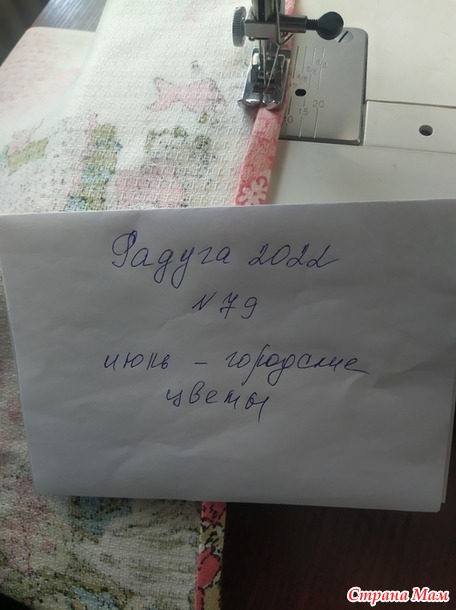 Радуга 2022
N 79
июль – городские
цветы
20
15
Страна Мам